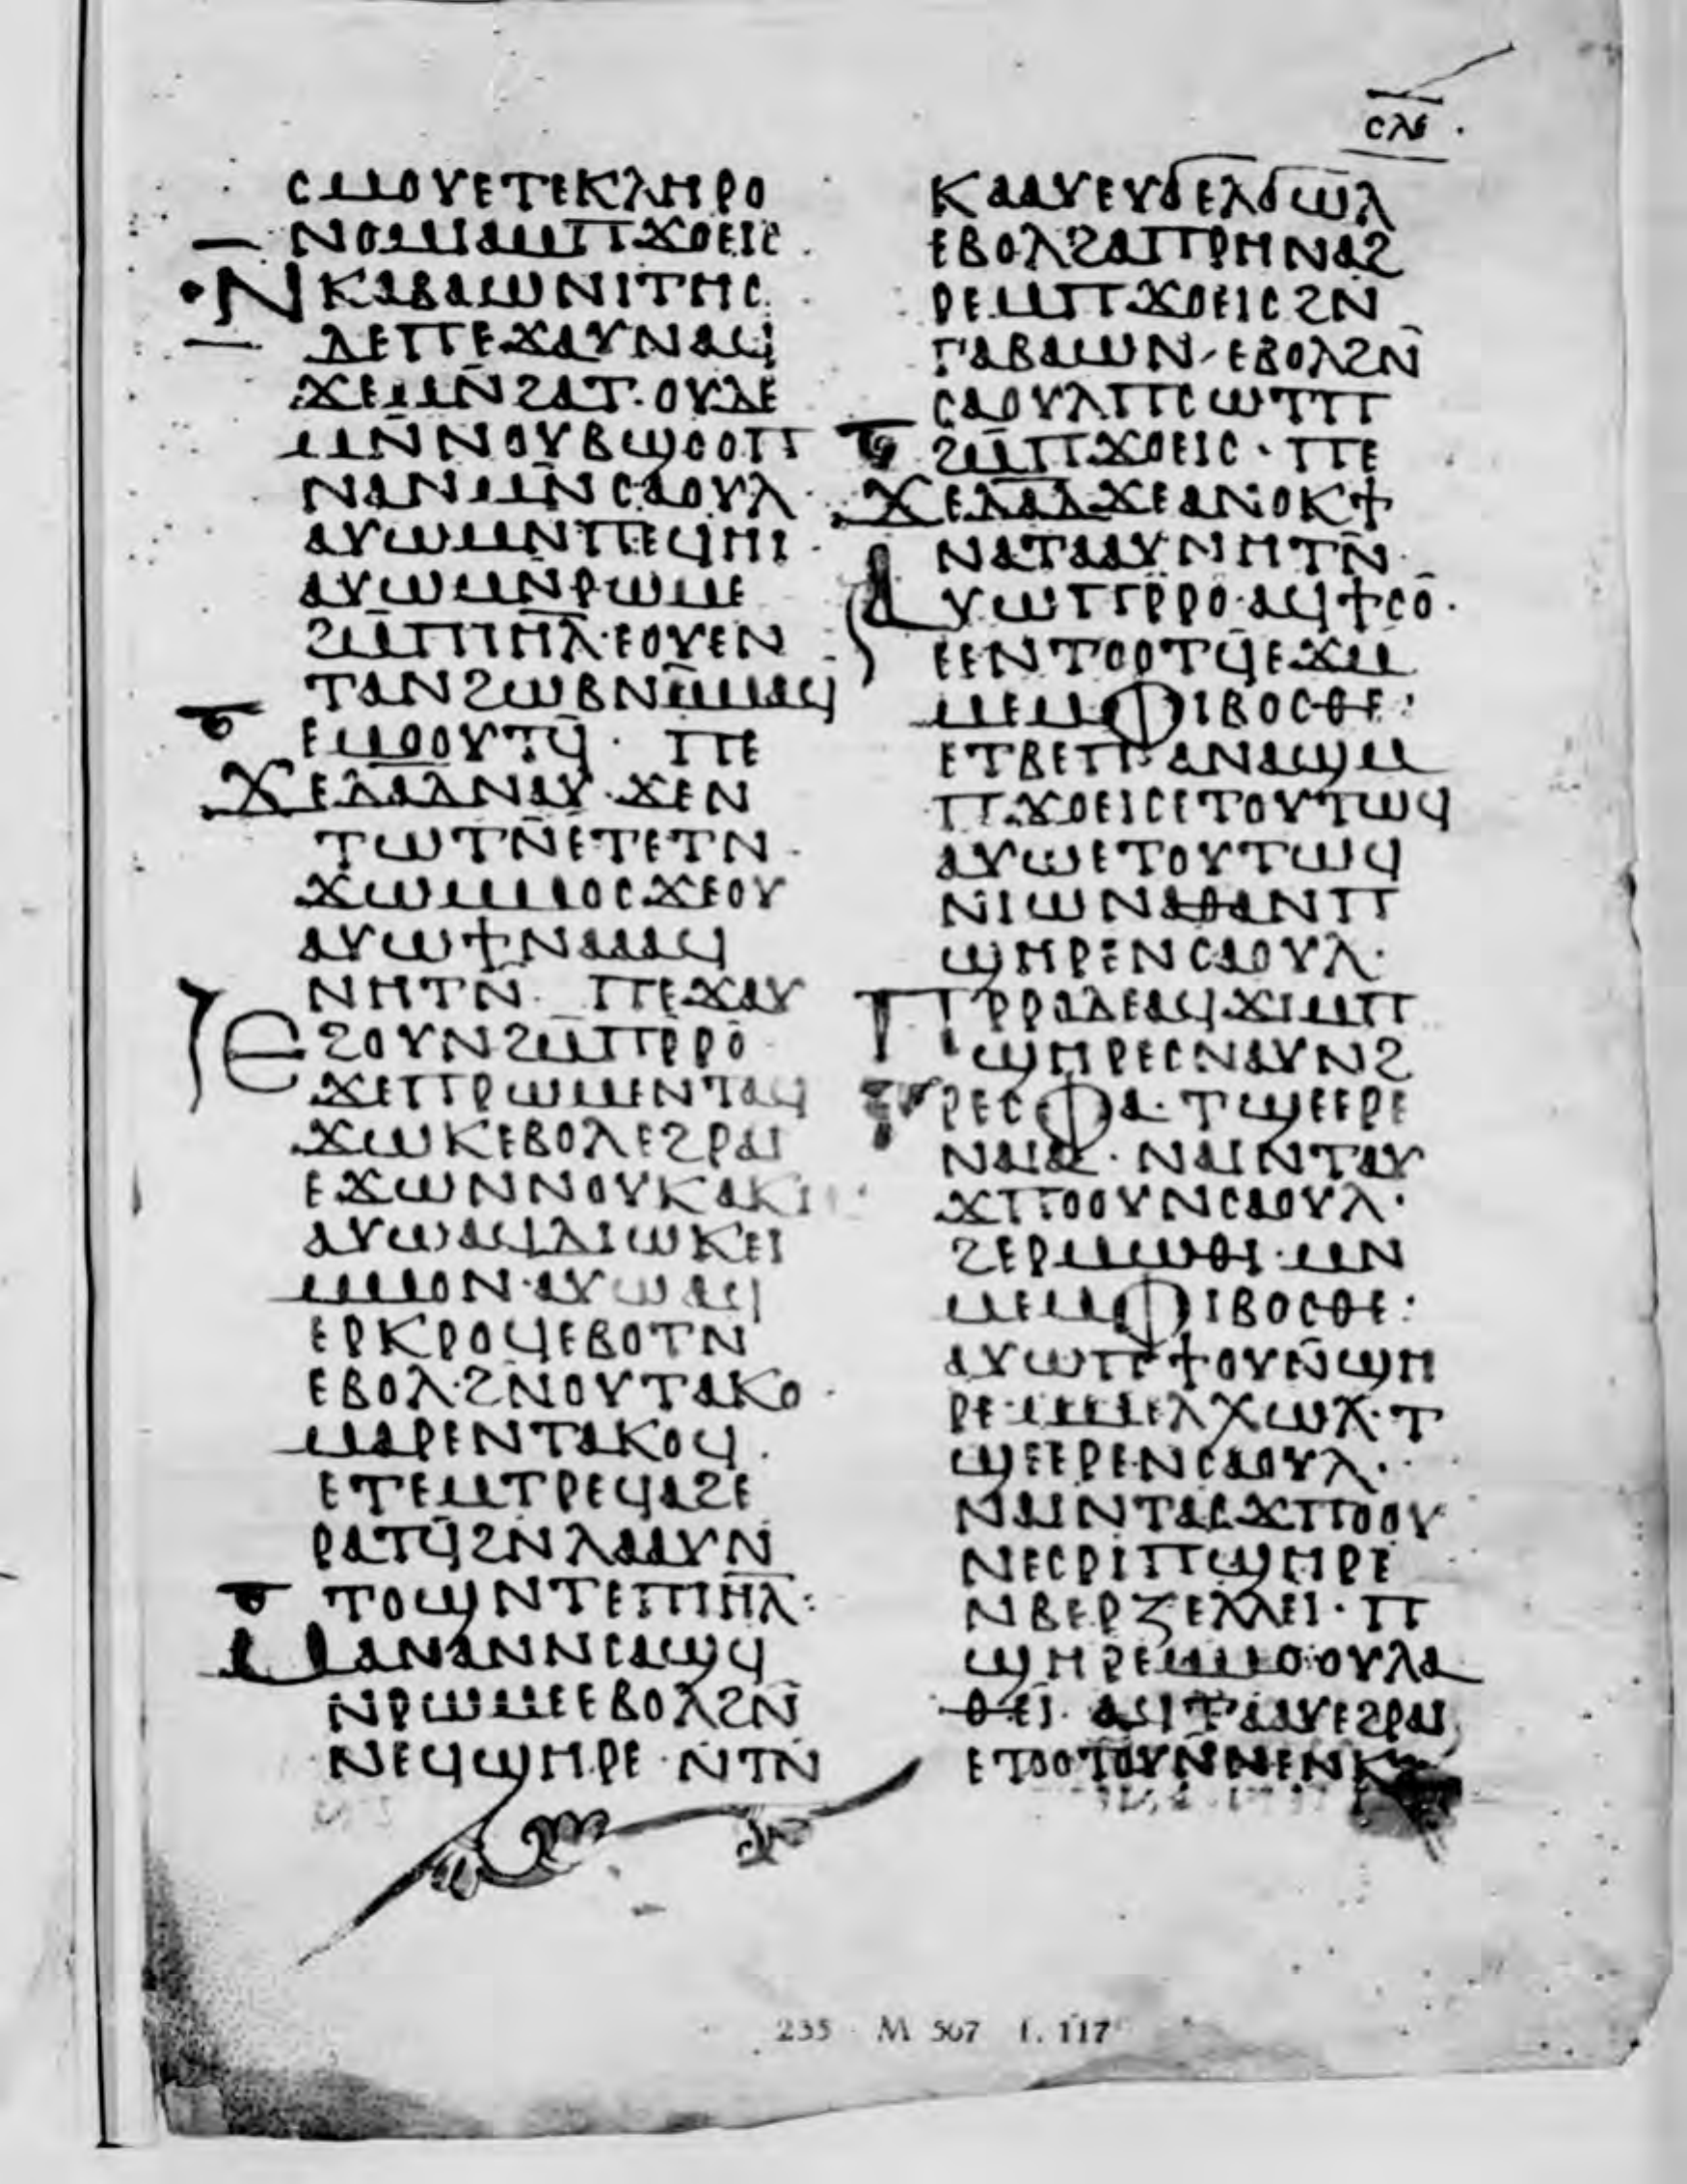 ⲥⲗⲉ
ⲥⲙⲟⲩⲉⲧⲉⲕⲗⲏⲣⲟ
ⲛⲟⲙⲓⲁⲙⲡϫⲟⲉⲓⲥ
ⲛⲕⲁⲃⲁⲱⲛⲓⲧⲏⲥ
ⲇⲉⲡⲉϫⲁⲩⲛⲁϥ
ϫⲉⲙⲛ̄ϩⲁⲧ·ⲟⲩⲇⲉ
ⲙⲛ̄ⲛⲟⲩⲃϣⲟⲟⲡ
ⲛⲁⲛⲙⲛ̄ⲥⲁⲟⲩⲗ
ⲁⲩⲱⲙⲛⲡⲉϥⲏⲓ·
ⲁⲩⲱⲙⲛ̄ⲣⲱⲙⲉ
ϩⲙ̄ⲡⲓⲏⲗ·ⲉⲟⲩⲉⲛ
ⲧⲁⲛϩⲱⲃⲛⲙ̄ⲙⲁϥ
ⲉⲙⲟⲟⲩⲧϥ̄· ⲡⲉ
ϫⲉⲇⲁⲇⲛⲁⲩ·ϫⲉⲛ
ⲧⲱⲧⲛ̄ⲉⲧⲉⲧⲛ
ϫⲱⲙⲙⲟⲥϫⲉⲟⲩ
ⲁⲩⲱϯⲛⲁⲁⲁϥ
ⲛⲏⲧⲛ̄· ⲡⲉϫⲁⲩ
ⲉϩⲟⲩⲛϩⲙ̄ⲡⲣⲣⲟ
ϫⲉⲡⲣⲱⲙⲉⲛⲧⲁϥ
ϫⲱⲕⲉⲃⲟⲗⲉϩⲣⲁⲓ
ⲉϫⲱⲛⲛⲟⲩⲕⲁⲕⲓ
ⲁⲩⲱⲁϥⲇⲓⲱⲕⲉⲓ
ⲙⲙⲟⲛ·ⲁⲩⲱⲁϥ
ⲉⲣⲕⲣⲟϥⲉⲃⲟⲧⲛ
ⲉⲃⲟⲗ·ϩⲛⲟⲩⲧⲁⲕⲟ·
ⲙⲁⲣⲉⲛⲧⲁⲕⲟϥ·
ⲉⲧⲉⲙⲧⲣⲉϥⲁϩⲉ
ⲣⲁⲧϥ̄ϩⲛⲗⲁⲁⲩⲛ̄
ⲧⲟϣⲛⲧⲉⲡⲓⲏⲗ:
ⲙⲁⲛⲁⲛⲛⲥⲁϣϥ
ⲛⲣⲱⲙⲉⲉⲃⲟⲗϩⲛ̄
ⲛⲉϥϣⲏⲣⲉ·ⲛ̄ⲧⲛ
ⲕⲁⲁⲩⲉⲩϭⲉⲗϭⲱⲗ
ⲉⲃⲟⲗϩⲁⲡⲣⲏⲛⲁϩ
ⲣⲉⲙⲡϫⲟⲉⲓⲥϩⲛ
ⲅⲁⲃⲁⲱⲛ·ⲉⲃⲟⲗϩⲛ̄
ⲥⲁⲟⲩⲗⲡⲥⲱⲧⲡ
ϩⲙ̄ⲡϫⲟⲉⲓⲥ·ⲡⲉ
ϫⲉⲇⲁⲇϫⲉⲁⲛⲟⲕϯ
ⲛⲁⲧⲁⲁⲩⲛⲏⲧⲛ̄·
ⲁⲩⲱⲡⲣⲣⲟ·ⲁϥϯⲥⲟ·
ⲉⲉⲛⲧⲟⲟⲧϥ̄ⲉϫⲙ
ⲙⲉⲙⲫⲓⲃⲟⲥⲑⲉ:
ⲉⲧⲃⲉⲡⲁⲛⲁϣⲙ
ⲡϫⲟⲉⲓⲥⲉⲧⲟⲩⲧⲱϥ
ⲁⲩⲱⲉⲧⲟⲩⲧⲱϥ
ⲛⲓⲱⲛⲁⲑⲁⲛⲡ
ϣⲏⲣⲉⲛⲥⲁⲟⲩⲗ·
ⲡⲣⲣⲟⲇⲉⲁϥϫⲓⲙⲡ
ϣⲏⲣⲉⲥⲛⲁⲩⲛϩ
ⲣⲉⲥⲉⲫⲁ·ⲧϣⲉⲉⲣⲉ
ⲛⲁⲓⲁ·ⲛⲁⲓⲛⲧⲁⲩ
ϫⲡⲟⲟⲩⲛⲥⲁⲟⲩⲗ·
ϩⲉⲣⲙⲱⲑⲓ·ⲙⲛ
ⲙⲉⲙⲫⲓⲃⲟⲥⲑⲉ:
ⲁⲩⲱⲡⲉϯⲟⲩⲛ̄ϣⲏ
ⲣⲉ·ⲙⲙⲉⲗⲭⲱⲗ·ⲧ
ϣⲉⲉⲣⲉⲛⲥⲁⲟⲩⲗ·
ⲛⲁⲓⲛⲧⲁⲥϫⲡⲟⲟⲩ
ⲛⲉⲥⲣⲓⲡϣⲏⲣⲉ
ⲛⲃⲉⲣⲍⲉⲗⲗⲉⲓ·ⲡ
ϣⲏⲣⲉⲙⲙⲟⲟⲩⲗⲁ
ⲑⲉⲓ·ⲁϥⲧⲁⲁⲩⲉϩⲣⲁⲓ
ⲉⲧⲟⲟⲧⲟⲩⲛ̄ⲛⲉⲛⲕ
235 M 567 f. 117